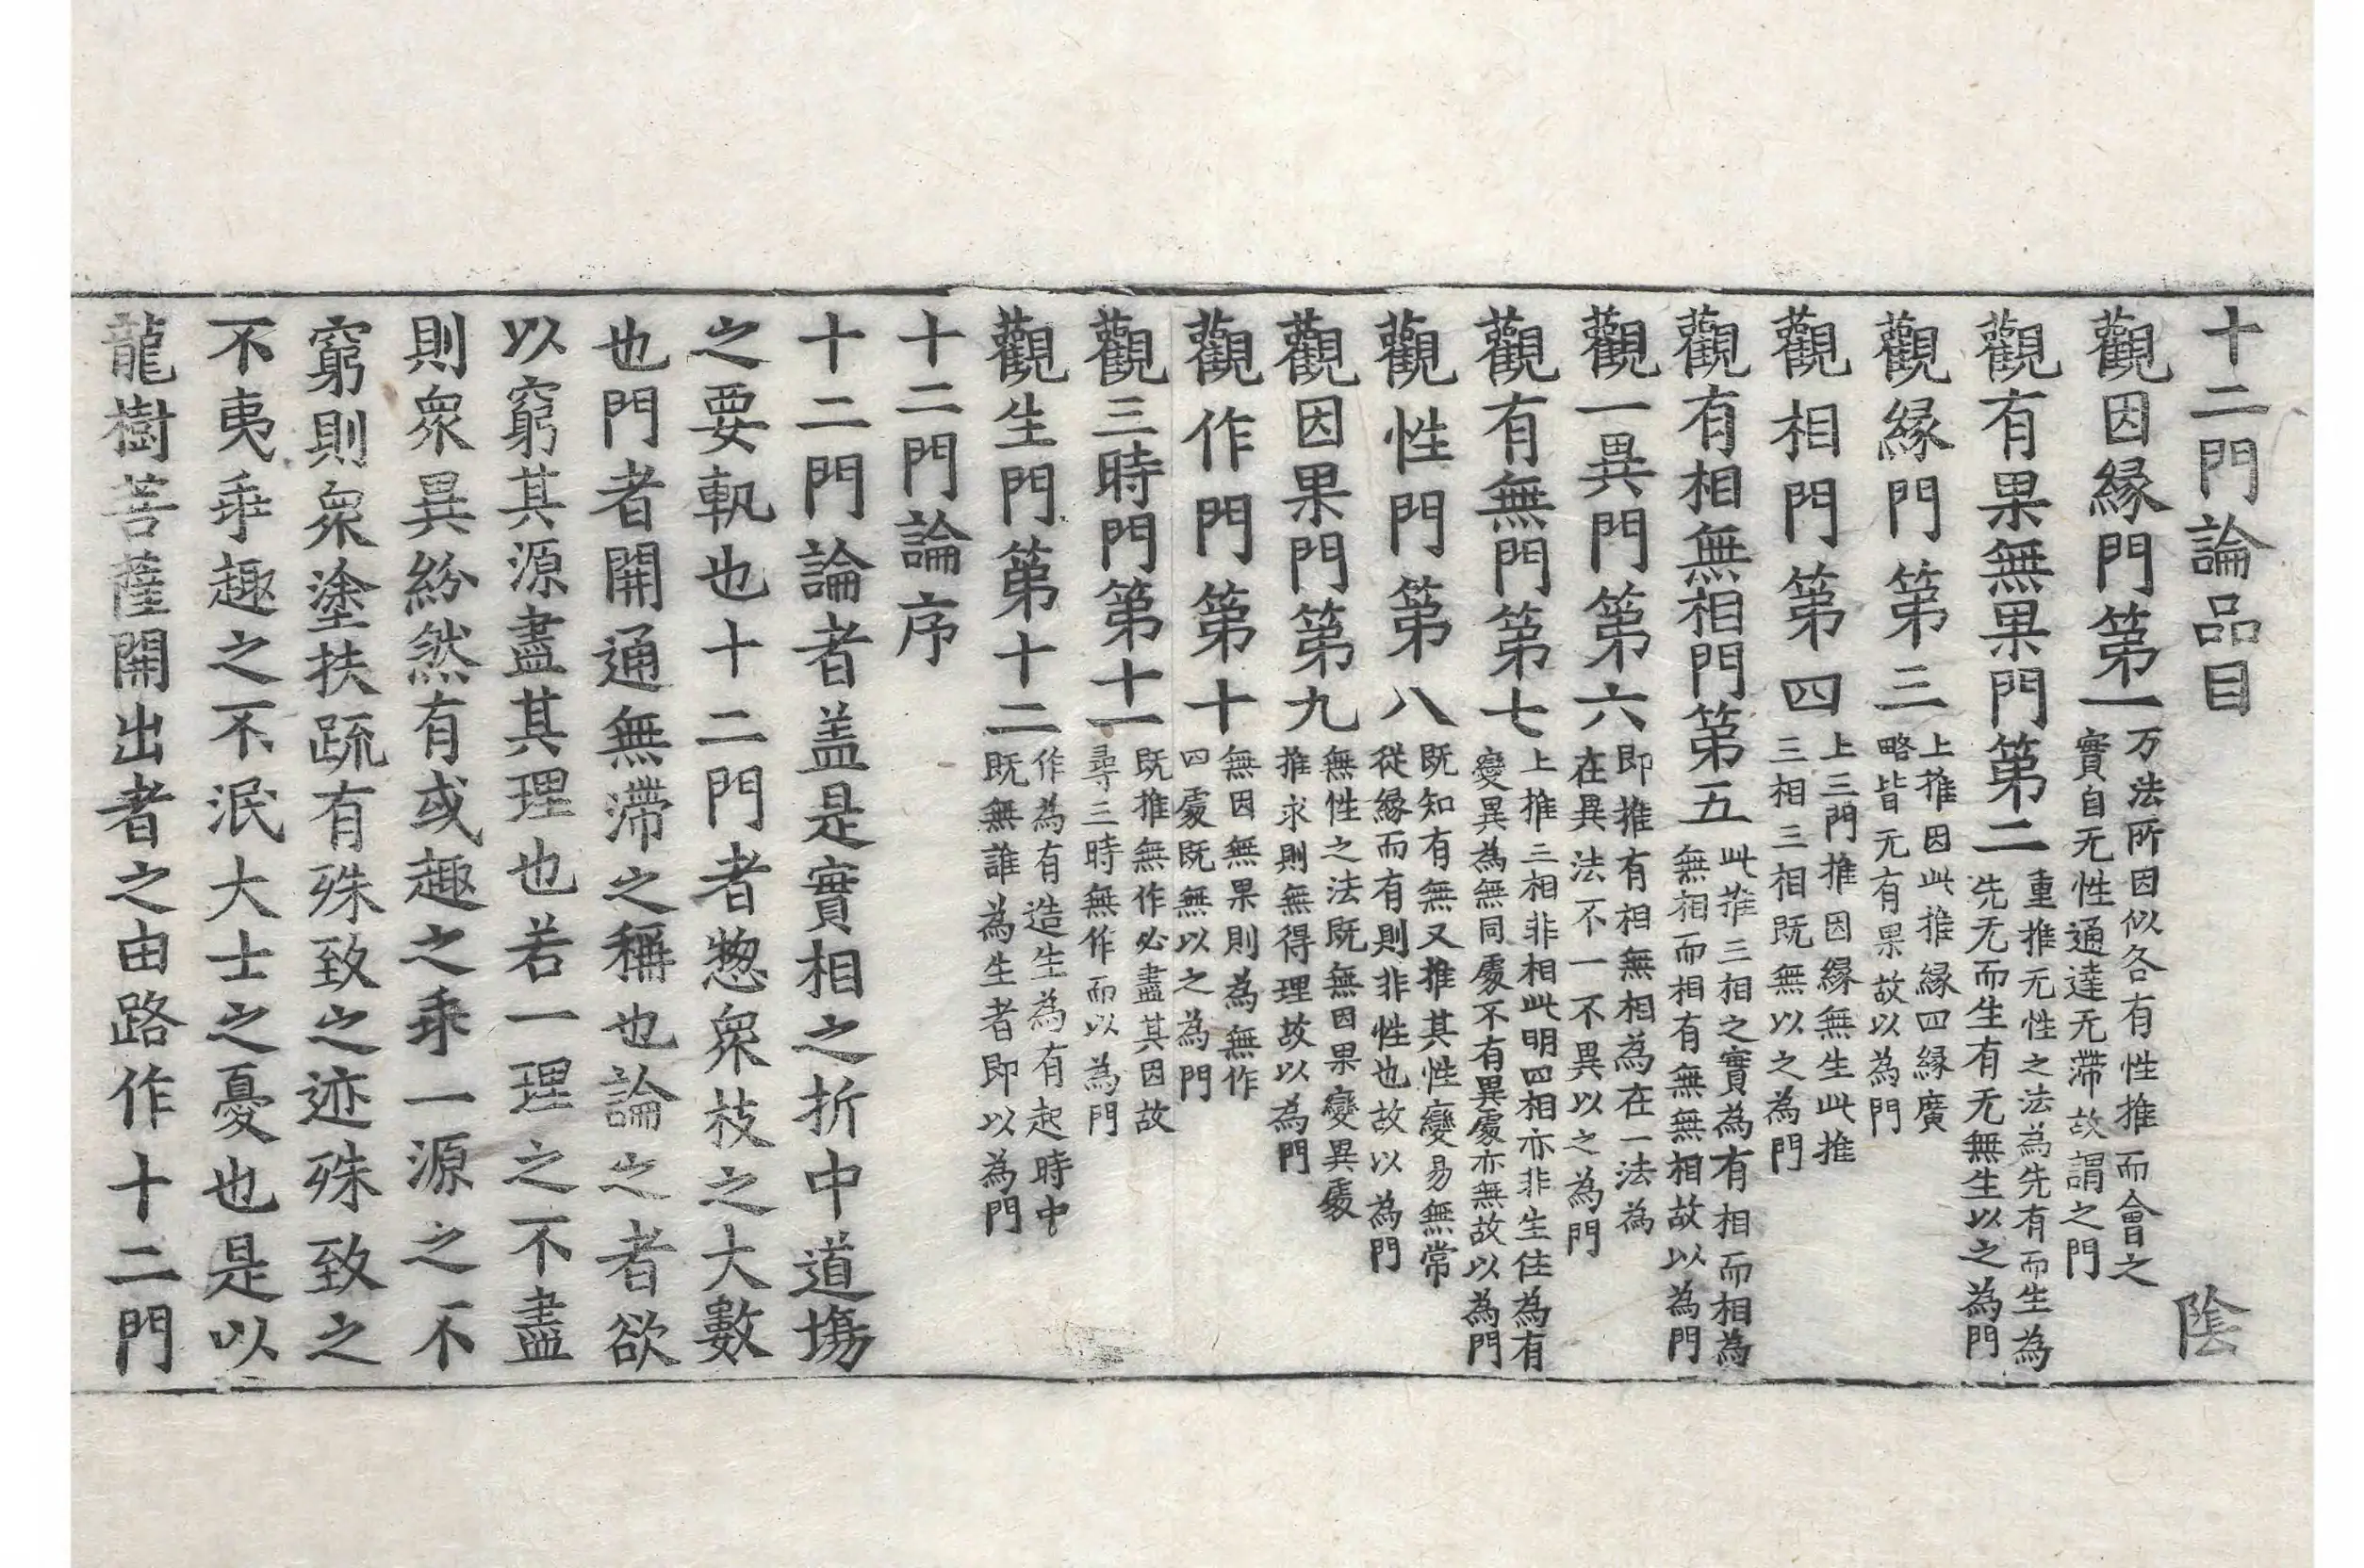 十二門論品目 陰
觀因緣門第一 万法所因似各有性推而會之
實自无性通達无滯故謂之門
觀有果無果門第二 重推无性之法為先有而生為
先无而生有无無生以之為門
觀緣門第三 上推因此推緣四緣廣
略皆无有果故以為門
觀相門第四 上三門推因緣無生此推
三相三相既無以之為門
觀有相無相門第五 此推三相之實為有相而相為
無相而相有無無相故以為門
觀一異門第六 即推有相無相為在一法為
在異法不一不異以之為門
觀有無門第七 上推三相非相此明四相亦非生住為有
變異為無同處不有異處亦無故以為門
觀性門第八 既知有無又推其性變易無常
從緣而有則非性也故以為門
觀因果門第九 無性之法既無因果變異處
推求則無得理故以為門
觀作門第十 無因無果則為無作
四處既無以之為門
觀三時門第十一 既推無作必盡其因故
尋三時無作而以為門
觀生門第十二 作為有造生為有起時中
既無誰為生者即以為門
十二門論序
十二門論者盖是實相之折中道場
之要軌也十二門者惣衆枝之大數
也門者開通無滯之稱也論之者欲
以窮其源盡其理也若一理之不盡
則衆異紛然有或趣之乖一源之不
窮則衆塗扶踈有殊致之迹殊致之
不夷乖趣之不泯大士之憂也是以
龍樹菩薩開出者之由路作十二門